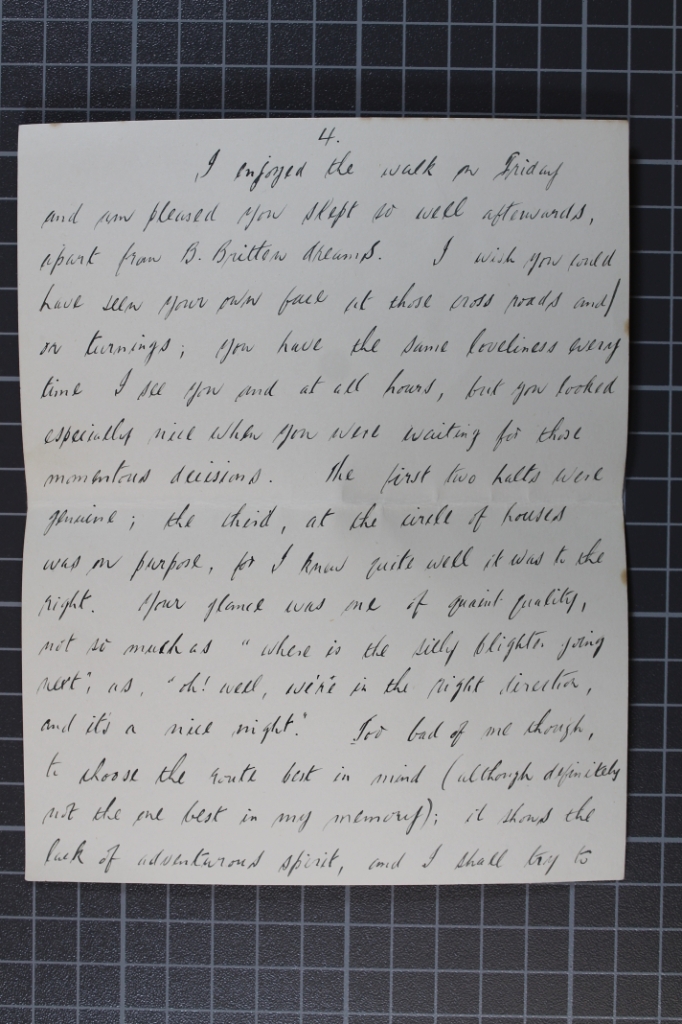 4.
I enjoyed the walk on Friday
and am pleased you slept so well afterwards,
apart from B. Britten dreams. I wish you could
have seen your own face at those cross roads and/
or turnings; you have the same loveliness every
time I see you and at all hours, but you looked
especially nice when you were waiting for those
momentous decisions. The first two halts were
genuine; the third, at the circle of houses
was on purpose, for I knew quite well it was to the
right. Your glance was one of quaint quality,
not so much as "where is the silly blighter going
next", as, "oh! well, we're in the right direction,
and it's a nice night." Too bad of me though,
to choose the route best in mind (although definitely
not the one best in my memory); it shows the
lack of adventurous spirit, and I shall try to